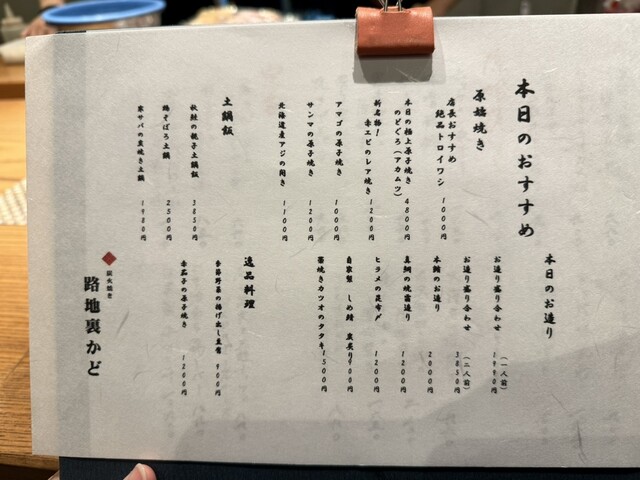 本日のおすすめ
原始焼き
店長おすすめ
絶品トロイワシ 1000円
本日の極上原子焼き
のどぐろ(アカムツ) 4800円
新名物!
赤エビのレア焼き 1200円
アマゴの原子焼き 1000円
サンマの原子焼き 1200円
北海道産アジの開き 1100円
土鍋飯
秋鮭の親子土鍋飯 3850円
鶏そぼろ土鍋 2500円
寒サバの炭焼き土鍋 1980円
本日のお造り
お造り盛り合わせ (一人前) 1990円
お造り盛り合わせ (二人前) 3850円
本鮪のお造り 2000円
真鯛の焼霜造り 1200円
ヒラメの昆布〆 1200円
自家製 しめ鯖 炭炙り 900円
藁焼きカツオのタタキ 1500円
逸品料理
季節野菜の揚げ出し豆腐 900円
赤茄子の原子焼き 1200円
炭火焼き
路地裏かど